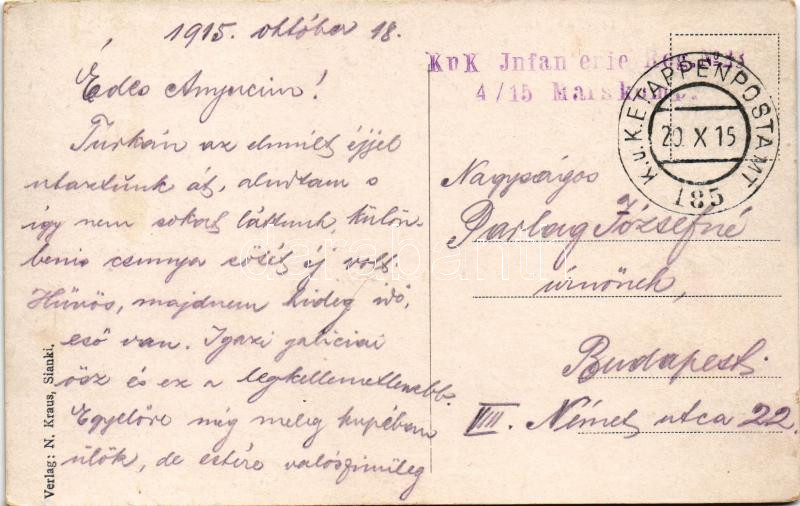 1915. október 18.
Édes Anyucim!
Turkán az elmúlt éjjel
utaztunk át, aludtam s
így nem sokat láttunk, külön-
benis csunya sötét éj volt.
Hűvös, majdnem hideg idő,
eső van. Igazi galiciai
ősz és ez a legkellemetlenebb.
Egyelőre még meleg kupéban
ülök, de estére valószinüleg
KuK Jnfan erie Reg.
4/15 Marskomp.
K.u.K. ETAPPENPOSTAMT
20. X 15
185
Nagyságos
Parlag Józsefné
úrnőnek,
Budapest.
VIII. Német utca 22.
Verlag: N. Kraus, Sianki.
darabanth